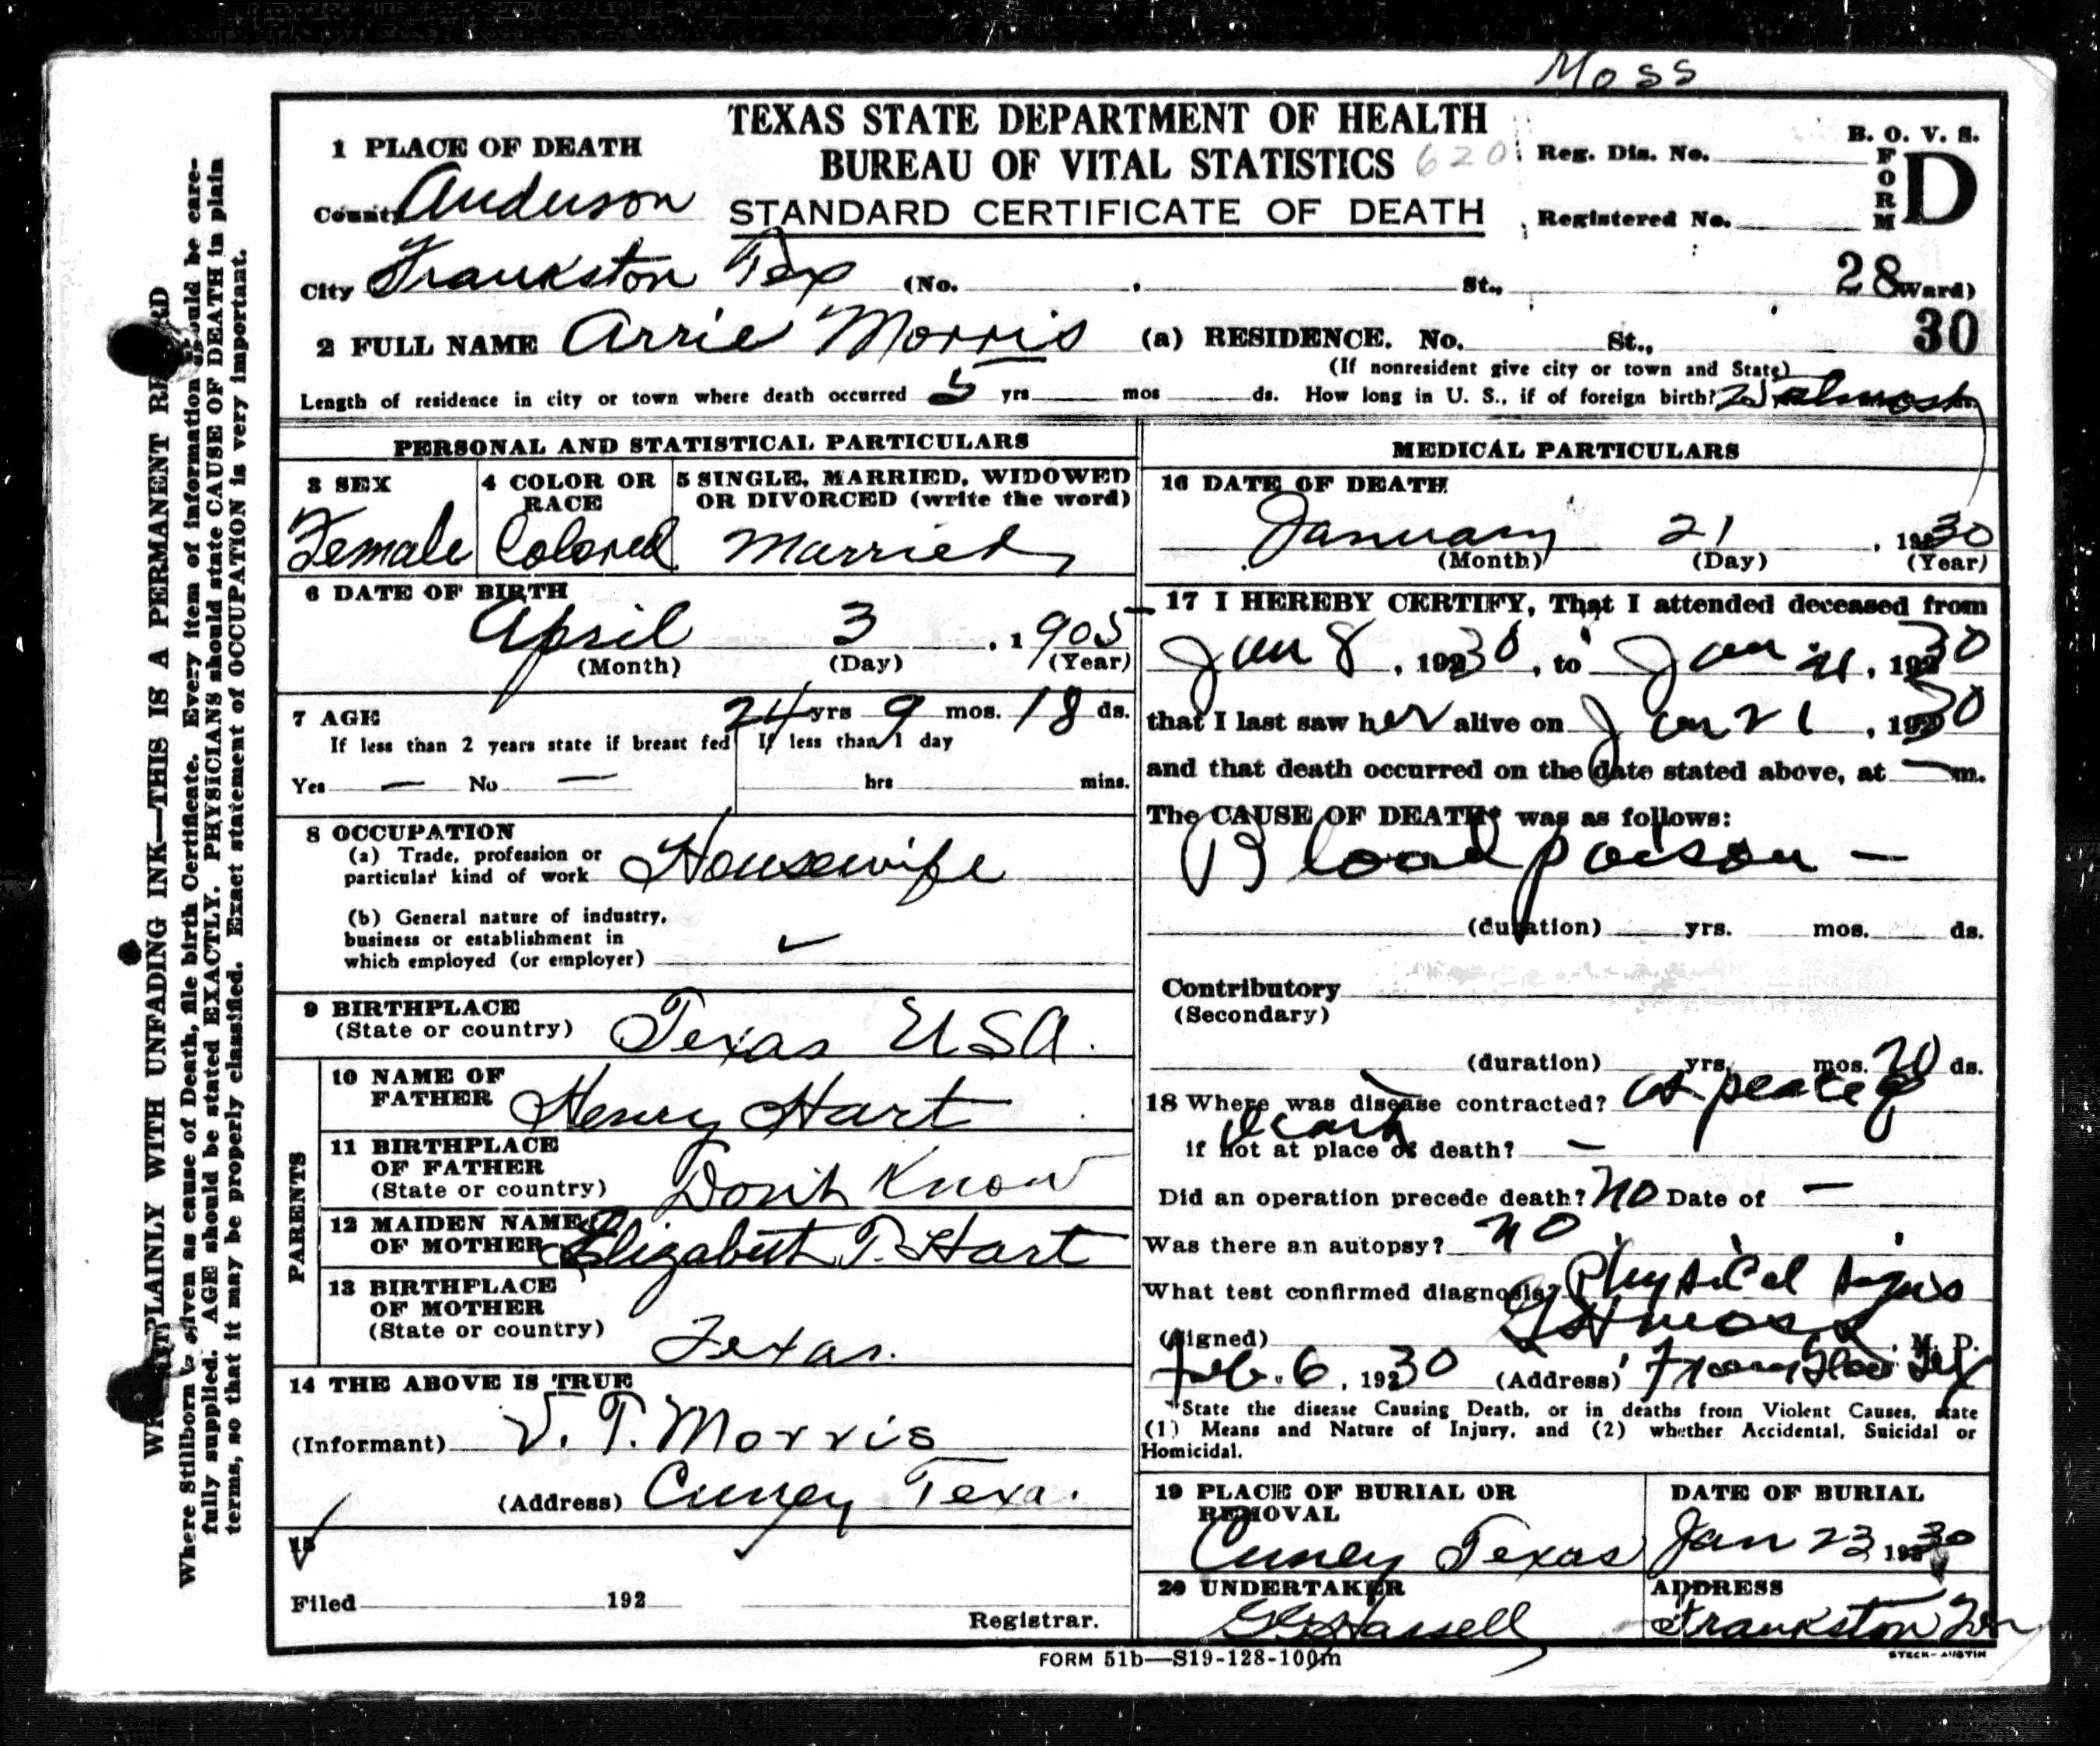 Moss
TEXAS STATE DEPARTMENT OF HEALTH
BUREAU OF VITAL STATISTICS 620
STANDARD CERTIFICATE OF DEATH
Reg. Dis. No.
Registered No.
B. O. V. S.
FORM D
1 PLACE OF DEATH
County Anderson
City Frankston Tex (No. St., 28 Ward)
2 FULL NAME Arrie Morris (a) RESIDENCE. No. St., 30
(If nonresident give city or town and State)
Length of residence in city or town where death occurred 5 yrs mos ds. How long in U. S., if of foreign birth?
PERSONAL AND STATISTICAL PARTICULARS
3 SEX
Female
4 COLOR OR RACE
Colored
5 SINGLE, MARRIED, WIDOWED
OR DIVORCED (write the word)
Married
6 DATE OF BIRTH
April 3, 1905
(Month) (Day) (Year)
7 AGE 24 yrs 9 mos. 18 ds.
If less than 2 years state if breast fed If less than 1 day
Yes — No — hrs mins.
8 OCCUPATION
(a) Trade, profession or
particular kind of work Housewife
(b) General nature of industry,
business or establishment in
which employed (or employer)
9 BIRTHPLACE
(State or country) Texas USA.
PARENTS
10 NAME OF
FATHER Henry Hart
11 BIRTHPLACE
OF FATHER
(State or country) Don't Know
12 MAIDEN NAME
OF MOTHER Elizabeth T. Hart
13 BIRTHPLACE
OF MOTHER
(State or country) Texas.
14 THE ABOVE IS TRUE
(Informant) V. T. Morris
(Address) Cuney Texa.
15
Filed 192
Registrar.
MEDICAL PARTICULARS
16 DATE OF DEATH
January 21, 1930
(Month) (Day) (Year)
17 I HEREBY CERTIFY, That I attended deceased from
Jan 8, 1930, to Jan 21, 1930
that I last saw her alive on Jan 21, 1930
and that death occurred on the date stated above, at — m.
The CAUSE OF DEATH* was as follows:
Blood poison —
(duration) yrs. mos. ds.
Contributory
(Secondary)
(duration) yrs. mos. 20 ds.
18 Where was disease contracted? at place of
death
if not at place of death? —
Did an operation precede death? No Date of —
Was there an autopsy? no
What test confirmed diagnosis? Physical signs
(Signed) Moss, M. D.
Feb. 6, 1930 (Address) Frankston Tex
*State the disease Causing Death, or in deaths from Violent Causes, state
(1) Means and Nature of Injury, and (2) whether Accidental, Suicidal or
Homicidal.
19 PLACE OF BURIAL OR
REMOVAL
Cuney Texas
DATE OF BURIAL
Jan 23 1930
20 UNDERTAKER
Hassell
ADDRESS
Frankston Tex
FORM 51b—S19-128-100m
STECK-AUSTIN
WRITE PLAINLY WITH UNFADING INK—THIS IS A PERMANENT RECORD
Where Stillborn is given as cause of Death, file birth Certificate. Every item of information should be care-
fully supplied. AGE should be stated EXACTLY. PHYSICIANS should state CAUSE OF DEATH in plain
terms, so that it may be properly classified. Exact statement of OCCUPATION is very important.